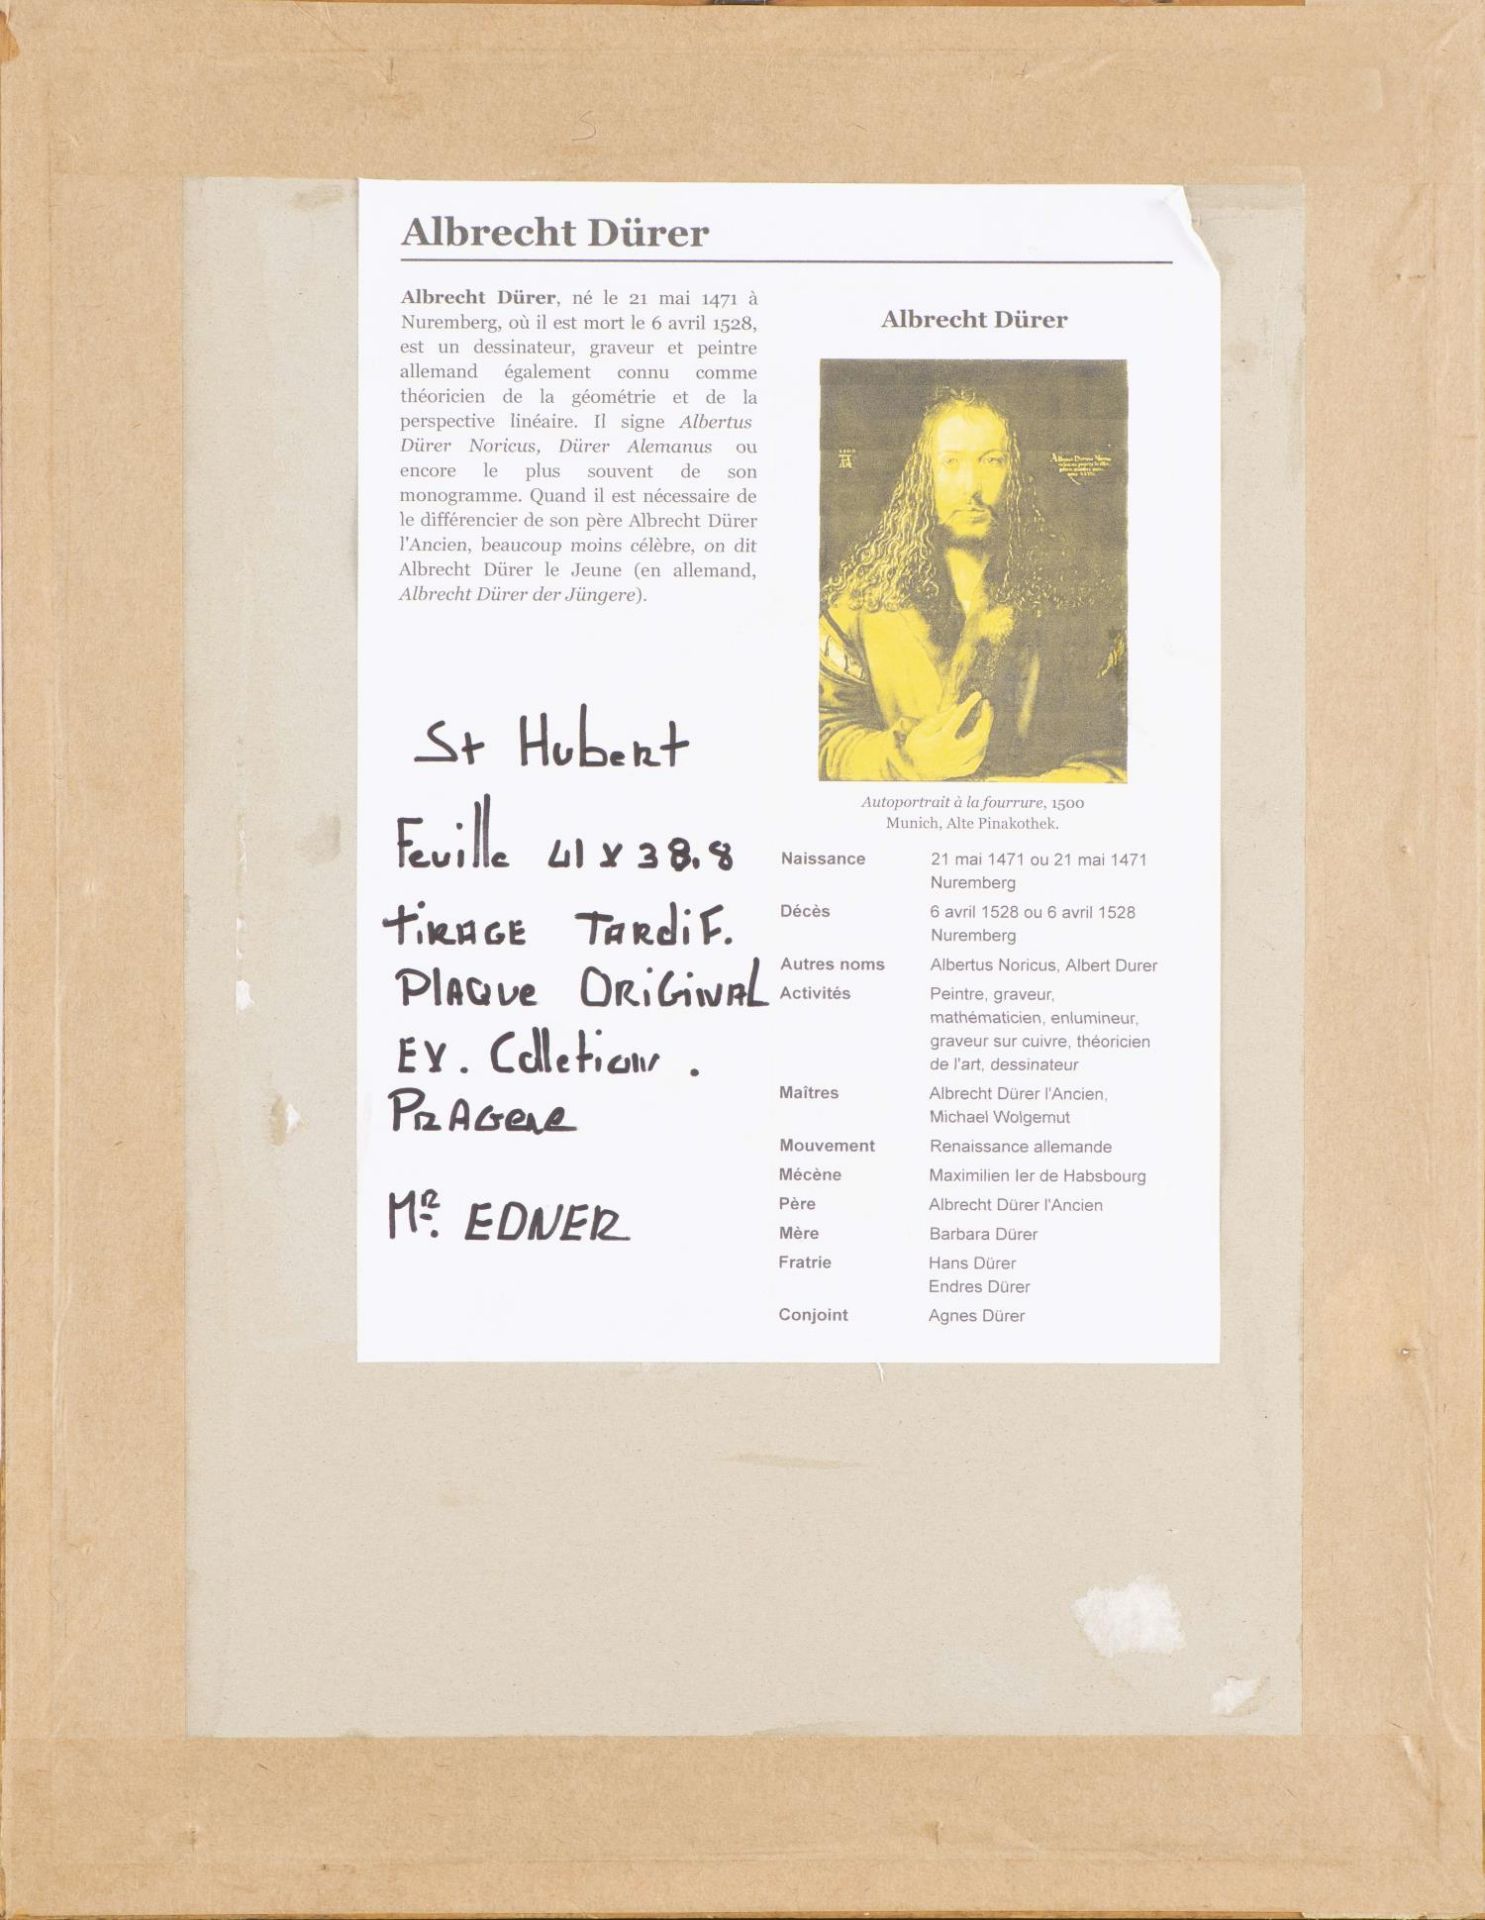 Albrecht Dürer
Albrecht Dürer, né le 21 mai 1471 à
Nuremberg, où il est mort le 6 avril 1528,
est un dessinateur, graveur et peintre
allemand également connu comme
théoricien de la géométrie et de la
perspective linéaire. Il signe Albertus
Dürer Noricus, Dürer Alemanus ou
encore le plus souvent de son
monogramme. Quand il est nécessaire de
le différencier de son père Albrecht Dürer
l'Ancien, beaucoup moins célèbre, on dit
Albrecht Dürer le Jeune (en allemand,
Albrecht Dürer der Jüngere).
St Hubert
Feuille 41 x 38.8
TIRAGE TARDIF.
PLAQUE ORIGINAL
EX. Colletion .
PRAGERE
Mr. EDNER
Albrecht Dürer
1500
Autoportrait à la fourrure, 1500
Munich, Alte Pinakothek.
Naissance 21 mai 1471 ou 21 mai 1471
Nuremberg
Décès 6 avril 1528 ou 6 avril 1528
Nuremberg
Autres noms Albertus Noricus, Albert Durer
Activités Peintre, graveur,
mathématicien, enlumineur,
graveur sur cuivre, théoricien
de l'art, dessinateur
Maîtres Albrecht Dürer l'Ancien,
Michael Wolgemut
Mouvement Renaissance allemande
Mécène Maximilien Ier de Habsbourg
Père Albrecht Dürer l'Ancien
Mère Barbara Dürer
Fratrie Hans Dürer
Endres Dürer
Conjoint Agnes Dürer